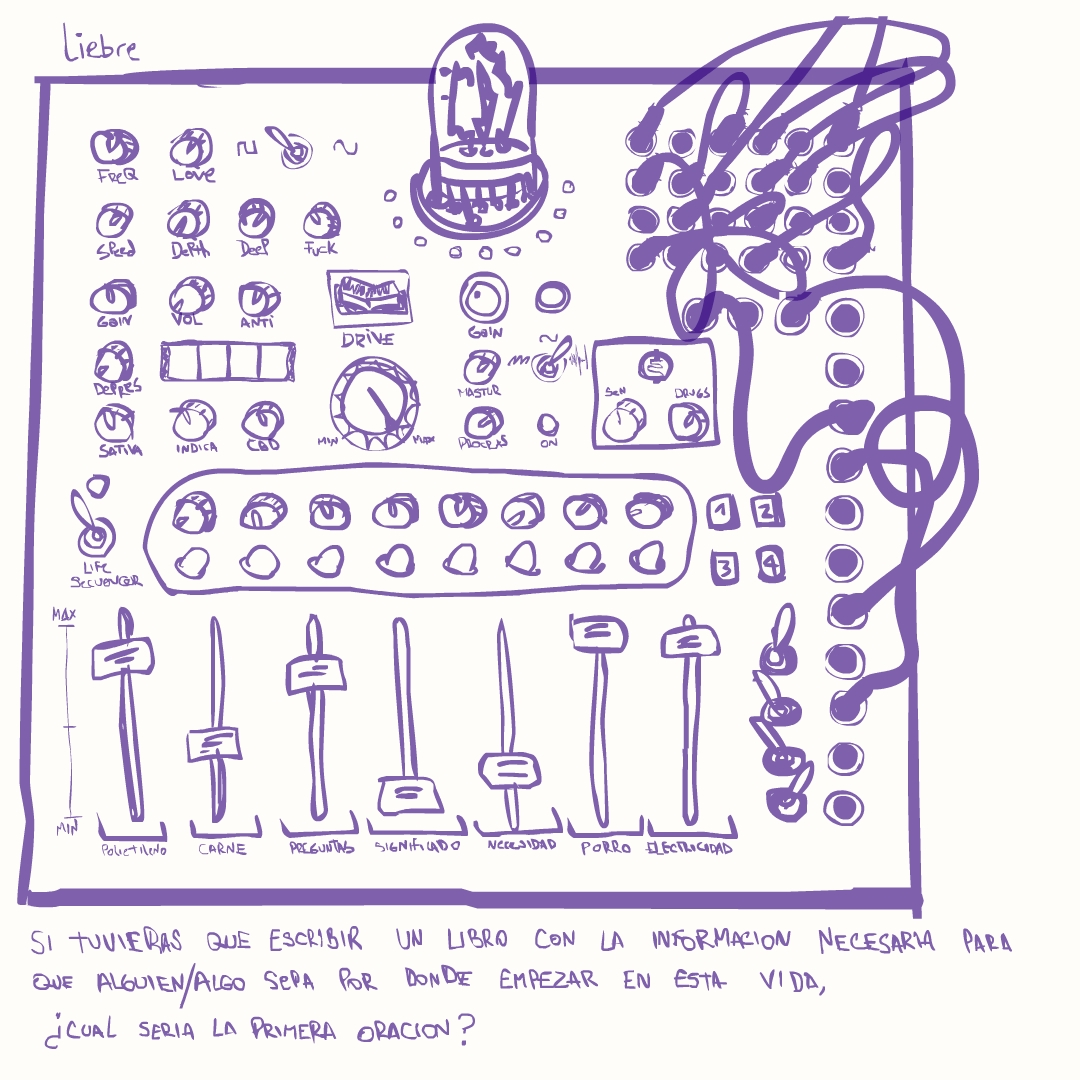 Liebre
FREQ LOVE
SPEED DEPTH DEEP FUCK
GAIN VOL ANTI
DRIVE GAIN
DEPRES MASTUR SEN DRUGS
SATIVA INDICA CBD MIN MAX PROCRAS ON
1 2
LIFE
SECUENCER
3 4
MAX
MIN
POLIETILENO CARNE PREGUNTAS SIGNIFICADO NECESIDAD PORRO ELECTRICIDAD
SI TUVIERAS QUE ESCRIBIR UN LIBRO CON LA INFORMACION NECESARIA PARA
QUE ALGUIEN/ALGO SEPA POR DONDE EMPEZAR EN ESTA VIDA,
¿CUAL SERIA LA PRIMERA ORACION?